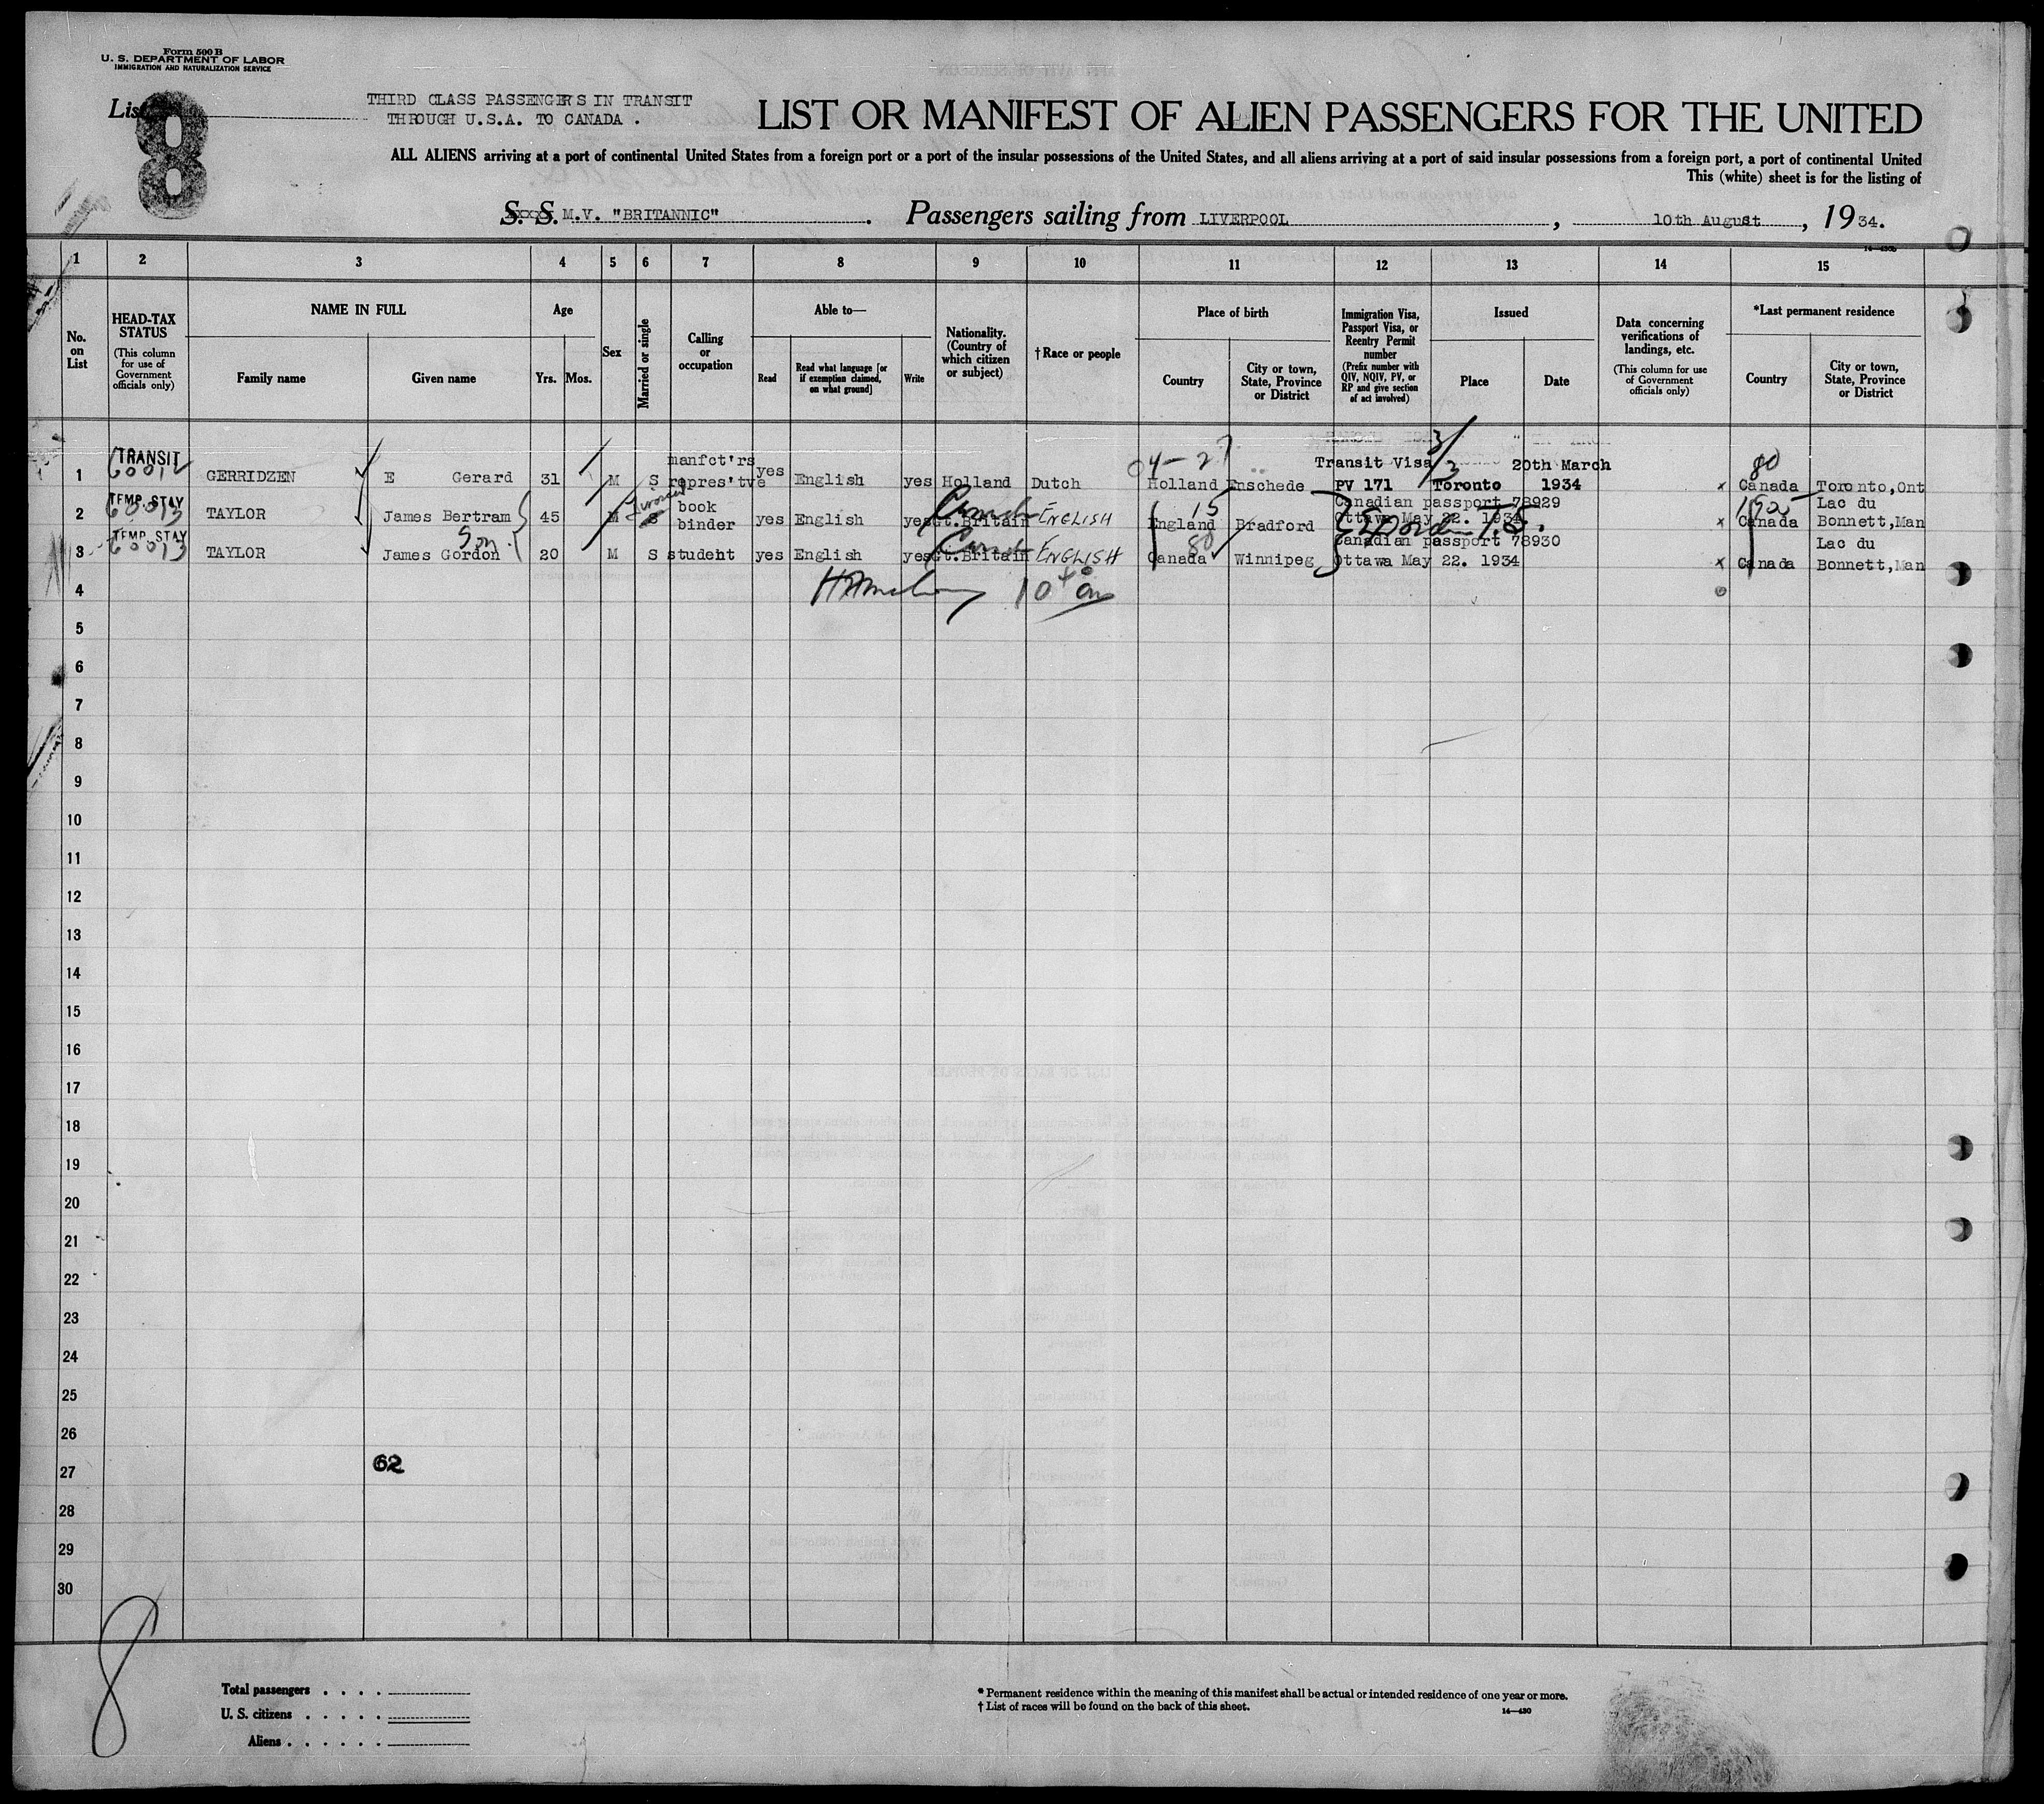 Form 500 B
U. S. DEPARTMENT OF LABOR
IMMIGRATION AND NATURALIZATION SERVICE
List 8
THIRD CLASS PASSENGERS IN TRANSIT
THROUGH U.S.A. TO CANADA .
LIST OR MANIFEST OF ALIEN PASSENGERS FOR THE UNITED
ALL ALIENS arriving at a port of continental United States from a foreign port or a port of the insular possessions of the United States, and all aliens arriving at a port of said insular possessions from a foreign port, a port of continental United
This (white) sheet is for the listing of
S. S. M.V. "BRITANNIC" . Passengers sailing from LIVERPOOL , 10th August , 1934.
14—430b
1 2 3 4 5 6 7 8 9 10 11 12 13 14 15
No. on List
HEAD-TAX STATUS (This column for use of Government officials only)
NAME IN FULL
Family name
Given name
Age
Yrs. Mos.
Sex
Married or single
Calling or occupation
Able to—
Read
Read what language [or if exemption claimed, on what ground]
Write
Nationality. (Country of which citizen or subject)
† Race or people
Place of birth
Country
City or town, State, Province or District
Immigration Visa, Passport Visa, or Reentry Permit number (Prefix number with QIV, NQIV, PV, or RP and give section of act involved)
Issued
Place
Date
Data concerning verifications of landings, etc. (This column for use of Government officials only)
*Last permanent residence
Country
City or town, State, Province or District
1 TRANSIT 60012 GERRIDZEN E Gerard 31 M S manfct'rs repres'tve yes English yes Holland Dutch 04-27 Holland Enschede Transit Visa PV 171 3/3 Toronto 20th March 1934 x 80 Canada Toronto,Ont
2 TEMP. STAY 60013 TAYLOR James Bertram 45 M S Divorced book binder yes English yes Gt.Britain ENGLISH 15 England Bradford Canadian passport 78929 Ottawa May 22. 1934 x Canada Lac du Bonnett,Man
3 TEMP. STAY 60013 TAYLOR James Gordon Son 20 M S student yes English yes Gt.Britain ENGLISH 80 Canada Winnipeg Canadian passport 78930 Ottawa May 22. 1934 x Canada Lac du Bonnett,Man
4
5
6
7
8
9
10
11
12
13
14
15
16
17
18
19
20
21
22
23
24
25
26
27 62
28
29
30
8
Total passengers . . . .
U. S. citizens . . . . .
Aliens . . . . . .
* Permanent residence within the meaning of this manifest shall be actual or intended residence of one year or more.
† List of races will be found on the back of this sheet.
14—430